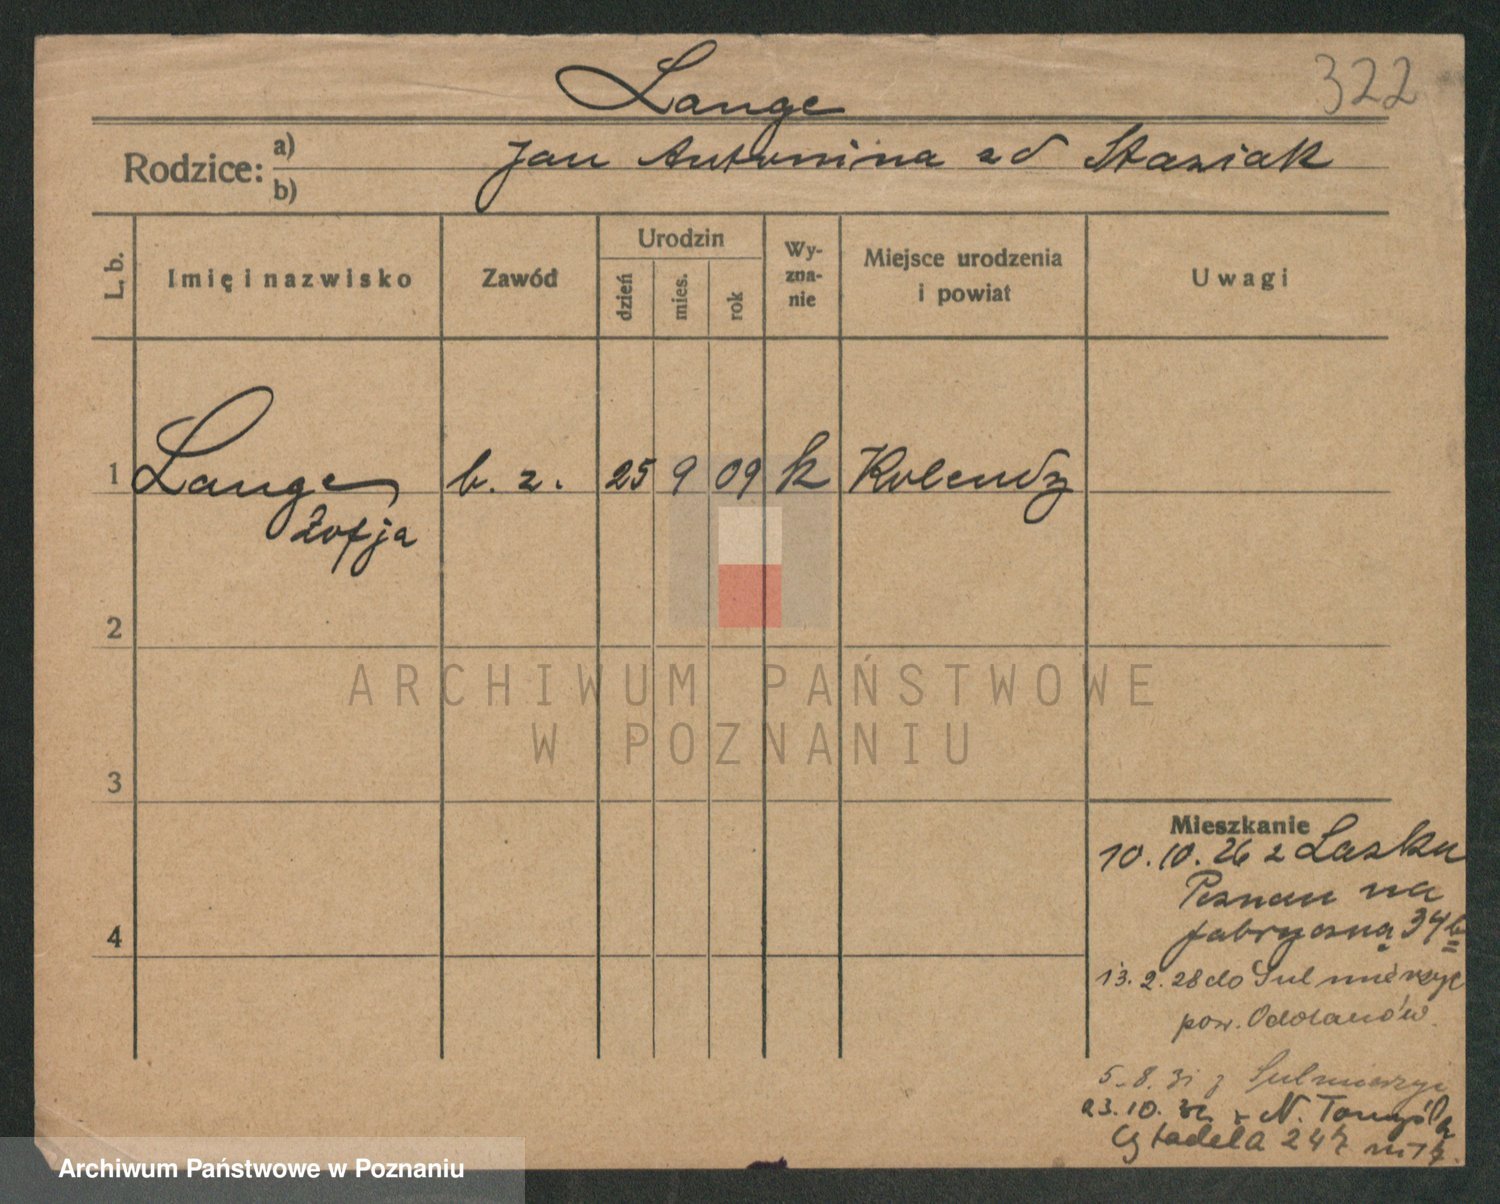 Lange
322
Rodzice: a) b)
Jan Antonina od Staziak
L. b.
Imię i nazwisko
Zawód
Urodzin
dzień
mies.
rok
Wy-
zna-
nie
Miejsce urodzenia
i powiat
Uwagi
1 Lange b. z. 25 9 09 k
Zofja
2
3
4
ARCHIWUM PAŃSTWOWE
W POZNANIU
Mieszkanie
10.10.26 z Lasku
Poznań na
fabryczną 34 b
13.2.28 do Sulmierzyc
pow. Odolanów
5.8.31 z Sulmierzyc
23.10. z N. Tomyśla
Cytadela
Archiwum Państwowe w Poznaniu